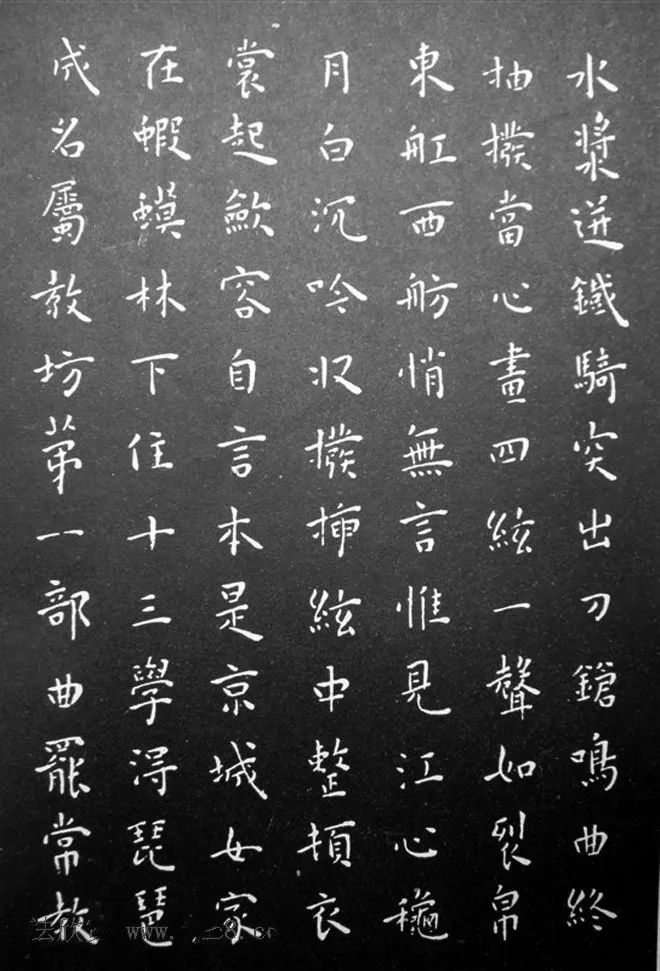 水漿迸鐵騎突出刀鎗鳴曲終
抽撥當心畫四絃一聲如裂帛
東舡西舫悄無言惟見江心穐
月白沉吟収撥插絃中整頓衣
裳起歛容自言本是京城女家
在蝦蟆林下住十三學得琵琶
成名屬教坊第一部曲罷常教